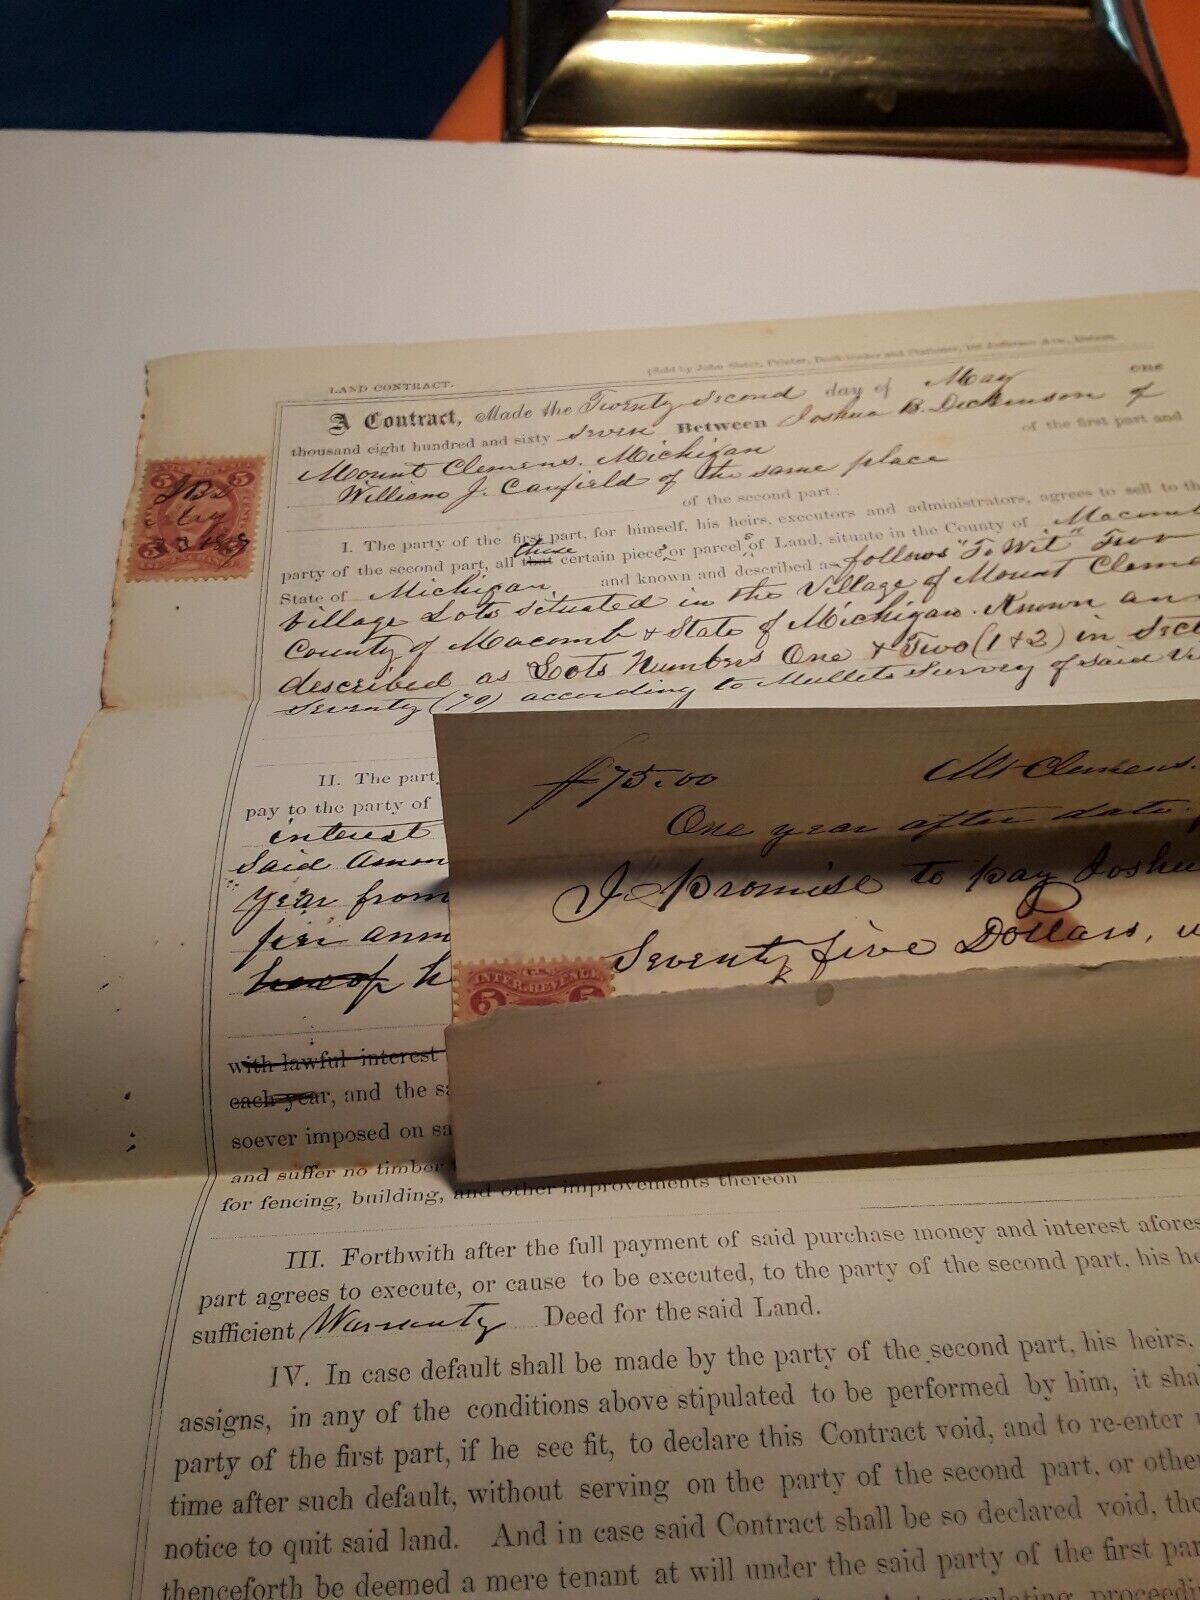 LAND CONTRACT.
(Sold by John Slater, Printer, Book-binder and Stationer, Jefferson Ave., Detroit.
A Contract, Made the Twenty second day of May one
thousand eight hundred and sixty seven Between Joshua B. Dickinson of
Mount Clemens. Michigan of the first part and
William J. Canfield of the same place
of the second part:
I. The party of the first part, for himself, his heirs, executors and administrators, agrees to sell to the
party of the second part, all that those certain pieces or parcels of Land, situate in the County of Macomb
State of Michigan and known and described as follows "To Wit" Two
Village Lots situated in the Village of Mount Cleme
County of Macomb & State of Michigan. Known an
described as Lots Numbers One & Two (1 & 2) in Sect
Seventy (70) according to Mullets Survey of said Vi
5 5
INTER. REVENUE
5 5
$75.00 Mt Clemens.
One year after date
I Promise to pay Joshu
Seventy five Dollars,
II. The party
pay to the party of
interest
Said Amou
Year from
per annu
with lawful interest
each year, and the sa
soever imposed on sa
and suffer no timber
for fencing, building, and other improvements thereon
III. Forthwith after the full payment of said purchase money and interest afores
part agrees to execute, or cause to be executed, to the party of the second part, his he
sufficient Warranty Deed for the said Land.
IV. In case default shall be made by the party of the second part, his heirs,
assigns, in any of the conditions above stipulated to be performed by him, it sha
party of the first part, if he see fit, to declare this Contract void, and to re-enter
time after such default, without serving on the party of the second part, or other
notice to quit said land. And in case said Contract shall be so declared void, the
thenceforth be deemed a mere tenant at will under the said party of the first par
proceedin